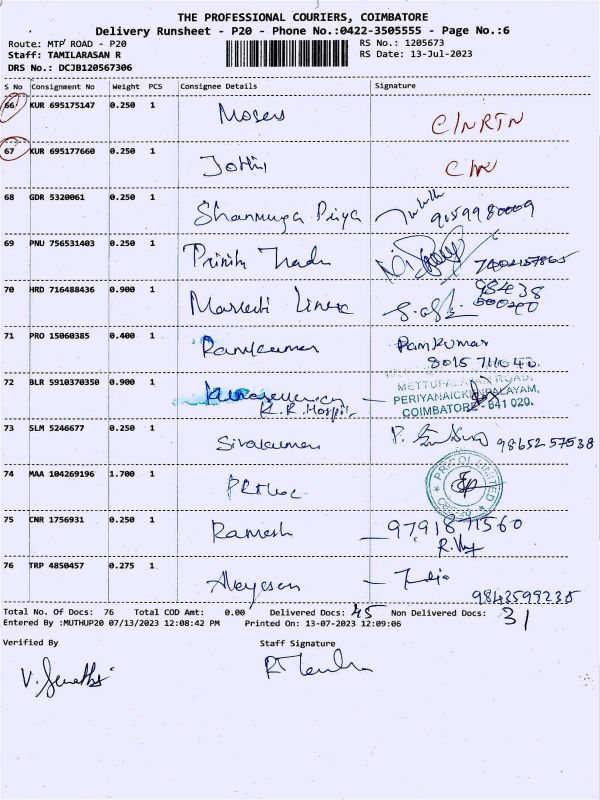 THE PROFESSIONAL COURIERS, COIMBATORE
Delivery Runsheet - P20 - Phone No.:0422-3505555 - Page No.:6
Route: MTP ROAD - P20 RS No.: 1205673
Staff: TAMILARASAN R RS Date: 13-Jul-2023
DRS No.: DCJB120567306
S No Consignment No Weight PCS Consignee Details Signature
66 KUR 695175147 0.250 1 Moses C/NRTN
67 KUR 695177660 0.250 1 Jothi
68 GDR 5320061 0.250 1 Shanmuga Priya 9159980009
69 PNU 756531403 0.250 1
70 HRD 716488436 0.900 1
71 PRO 15060385 0.400 1 Ramkumar Ramkumar
8015 711040.
72 BLR 5910370350 0.900 1 METTUPALAYAM ROAD,
K.R. Hospital PERIYANAICKENPALAYAM,
COIMBATORE - 641 020.
73 SLM 5246677 0.250 1 Sivakumar 9865257538
74 MAA 104269196 1.700 1 PRICOL LIMITED
75 CNR 1756931 0.250 1 Ramesh 9791871560
76 TRP 4850457 0.275 1 9843599235
Total No. Of Docs: 76 Total COD Amt: 0.00 Delivered Docs: 45 Non Delivered Docs: 31
Entered By :MUTHUP20 07/13/2023 12:08:42 PM Printed On: 13-07-2023 12:09:06
Verified By Staff Signature